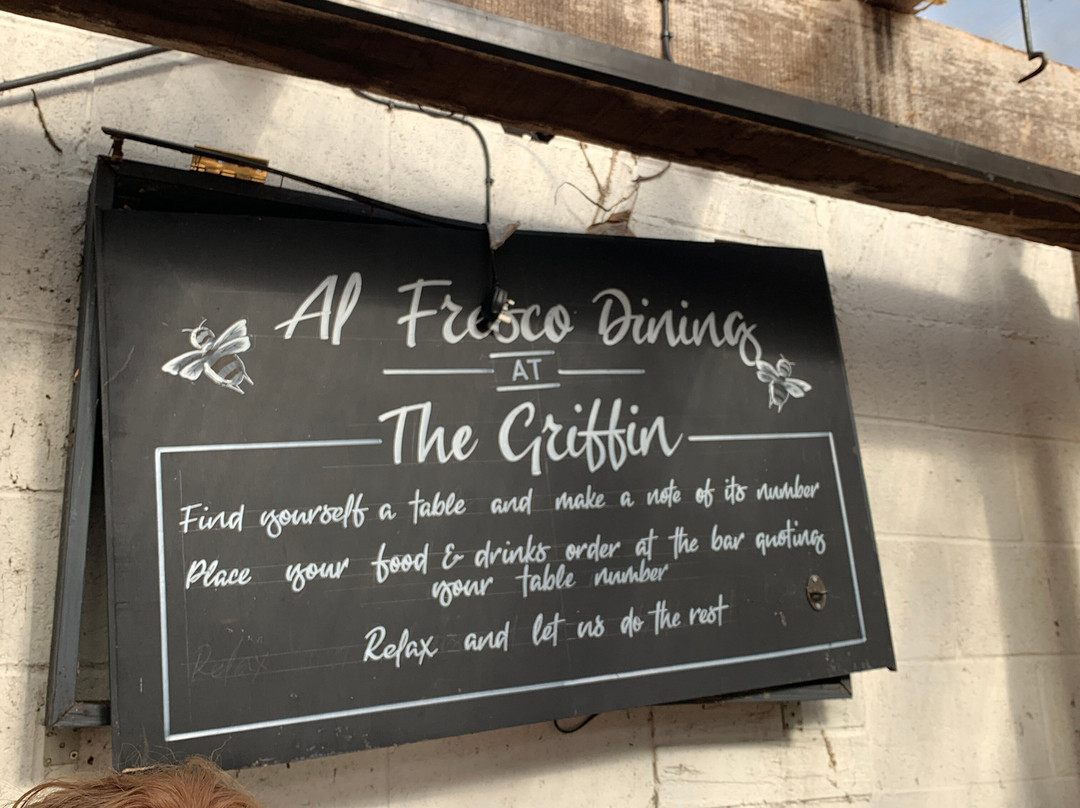 Al Fresco Dining
AT
The Griffin
Find yourself a table and make a note of its number
Place your food & drinks order at the bar quoting
your table number
Relax and let us do the rest
Relax